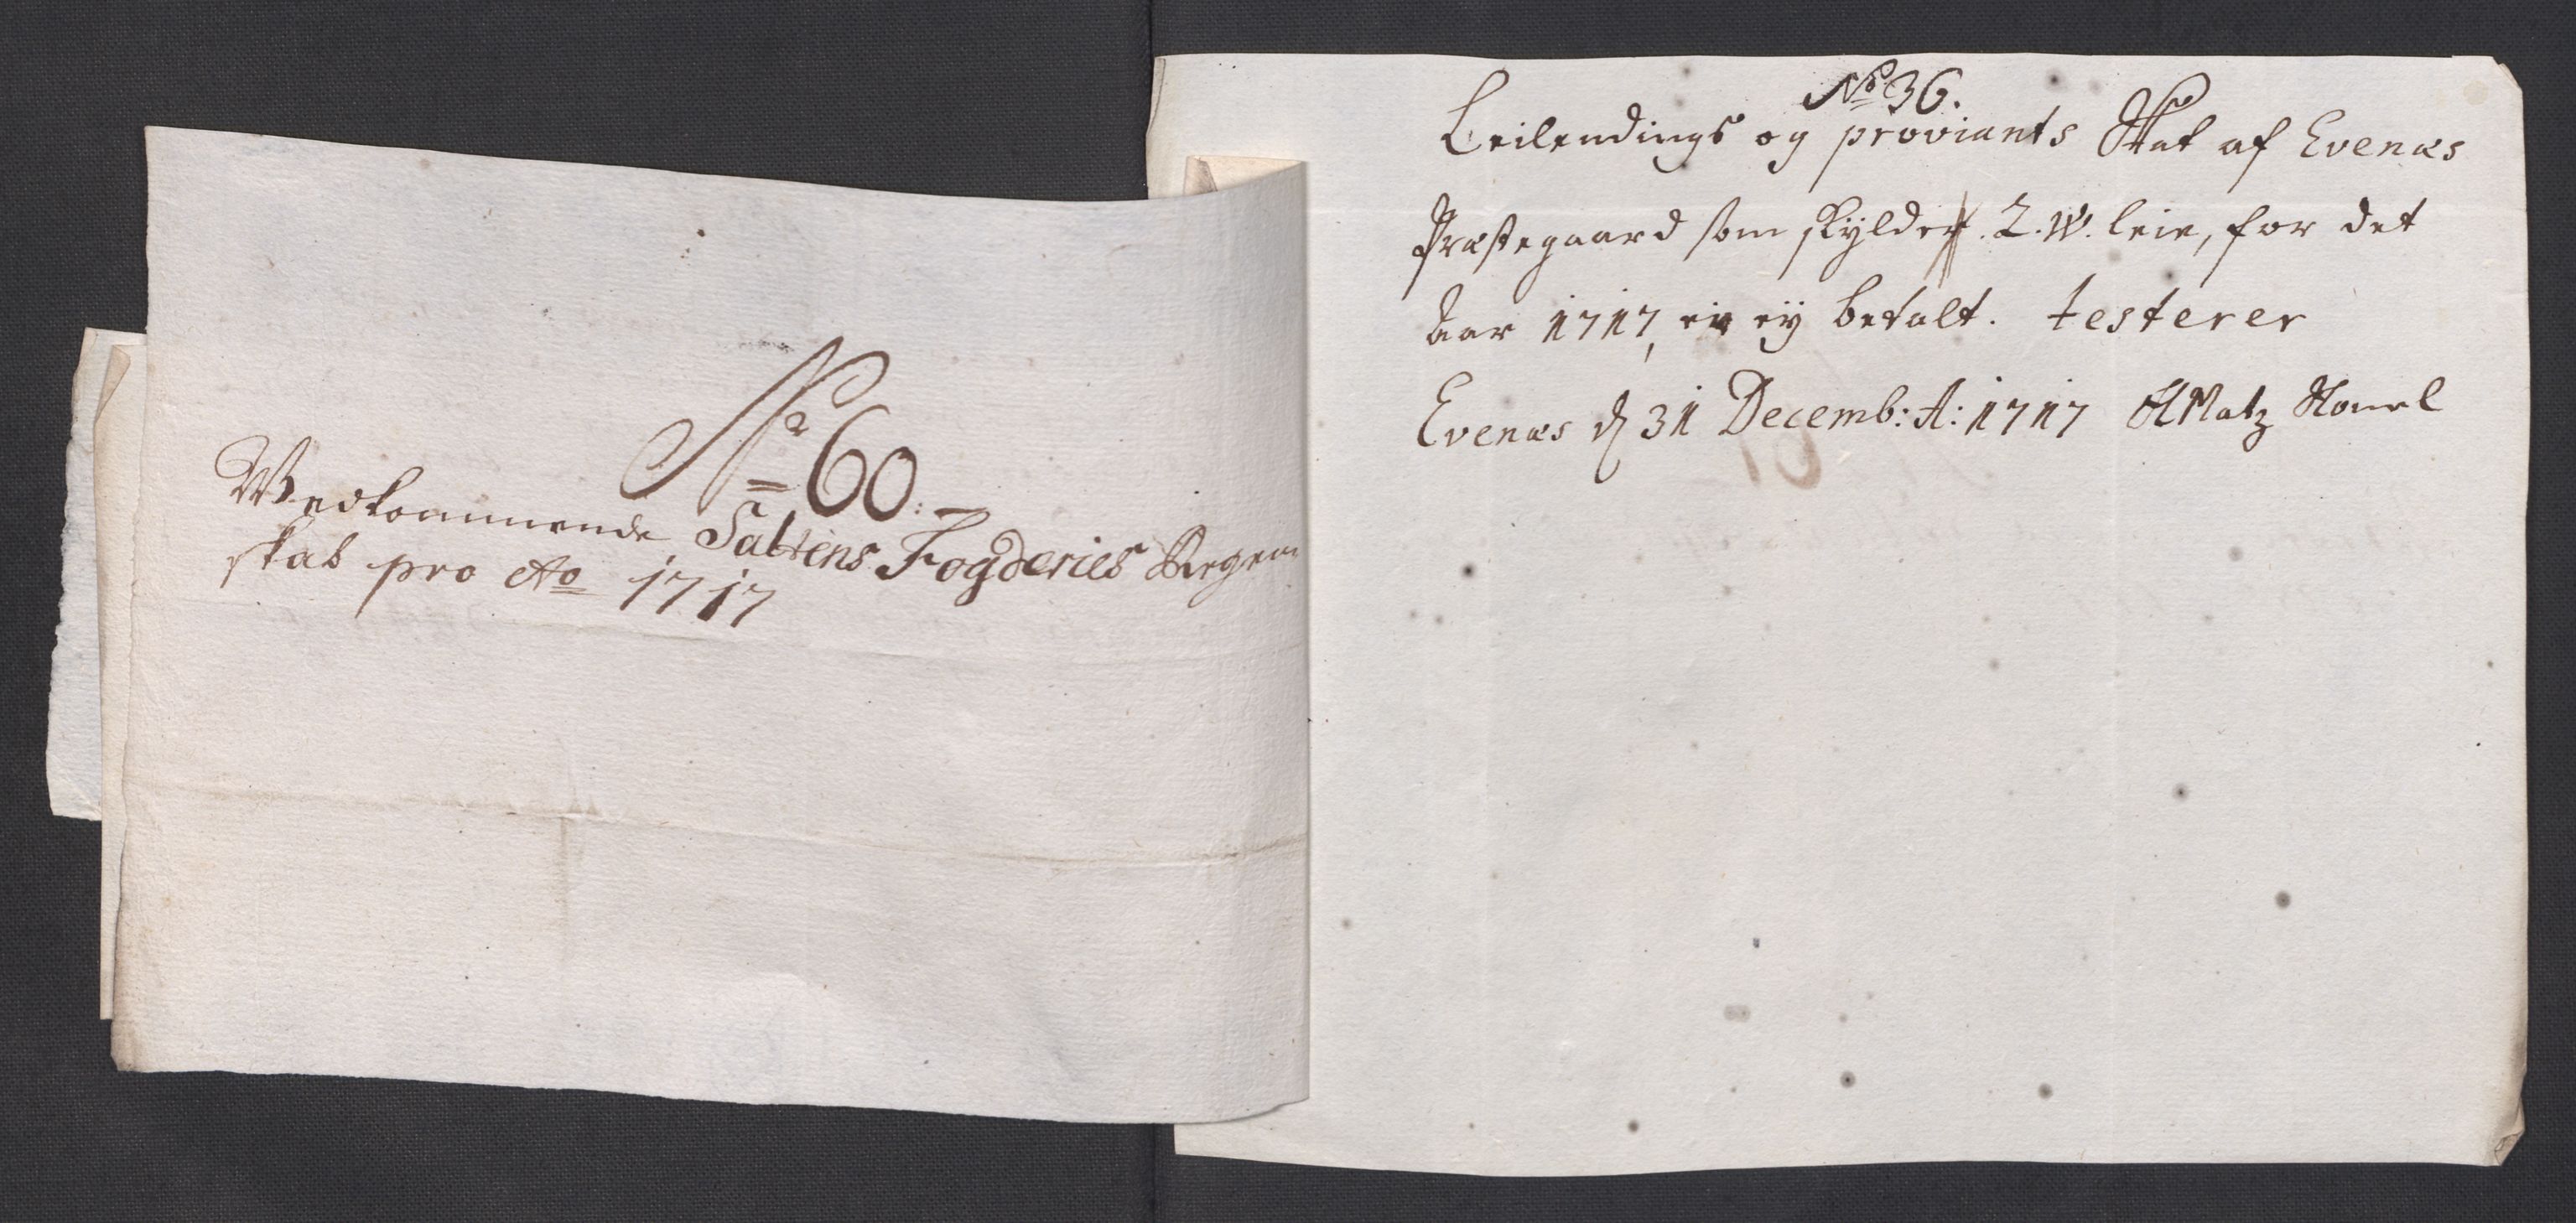 No 60.
Vedkommende Saltens Fogderies Regen
skab pro Ao 1717
No 36.
Leilendings og proviants Skat af Evenæs
Præstegaard som skylder 2. W. leie, for det
Aar 1717, er ey betalt. testerer
Evenæs d 31 Decemb: A: 1717